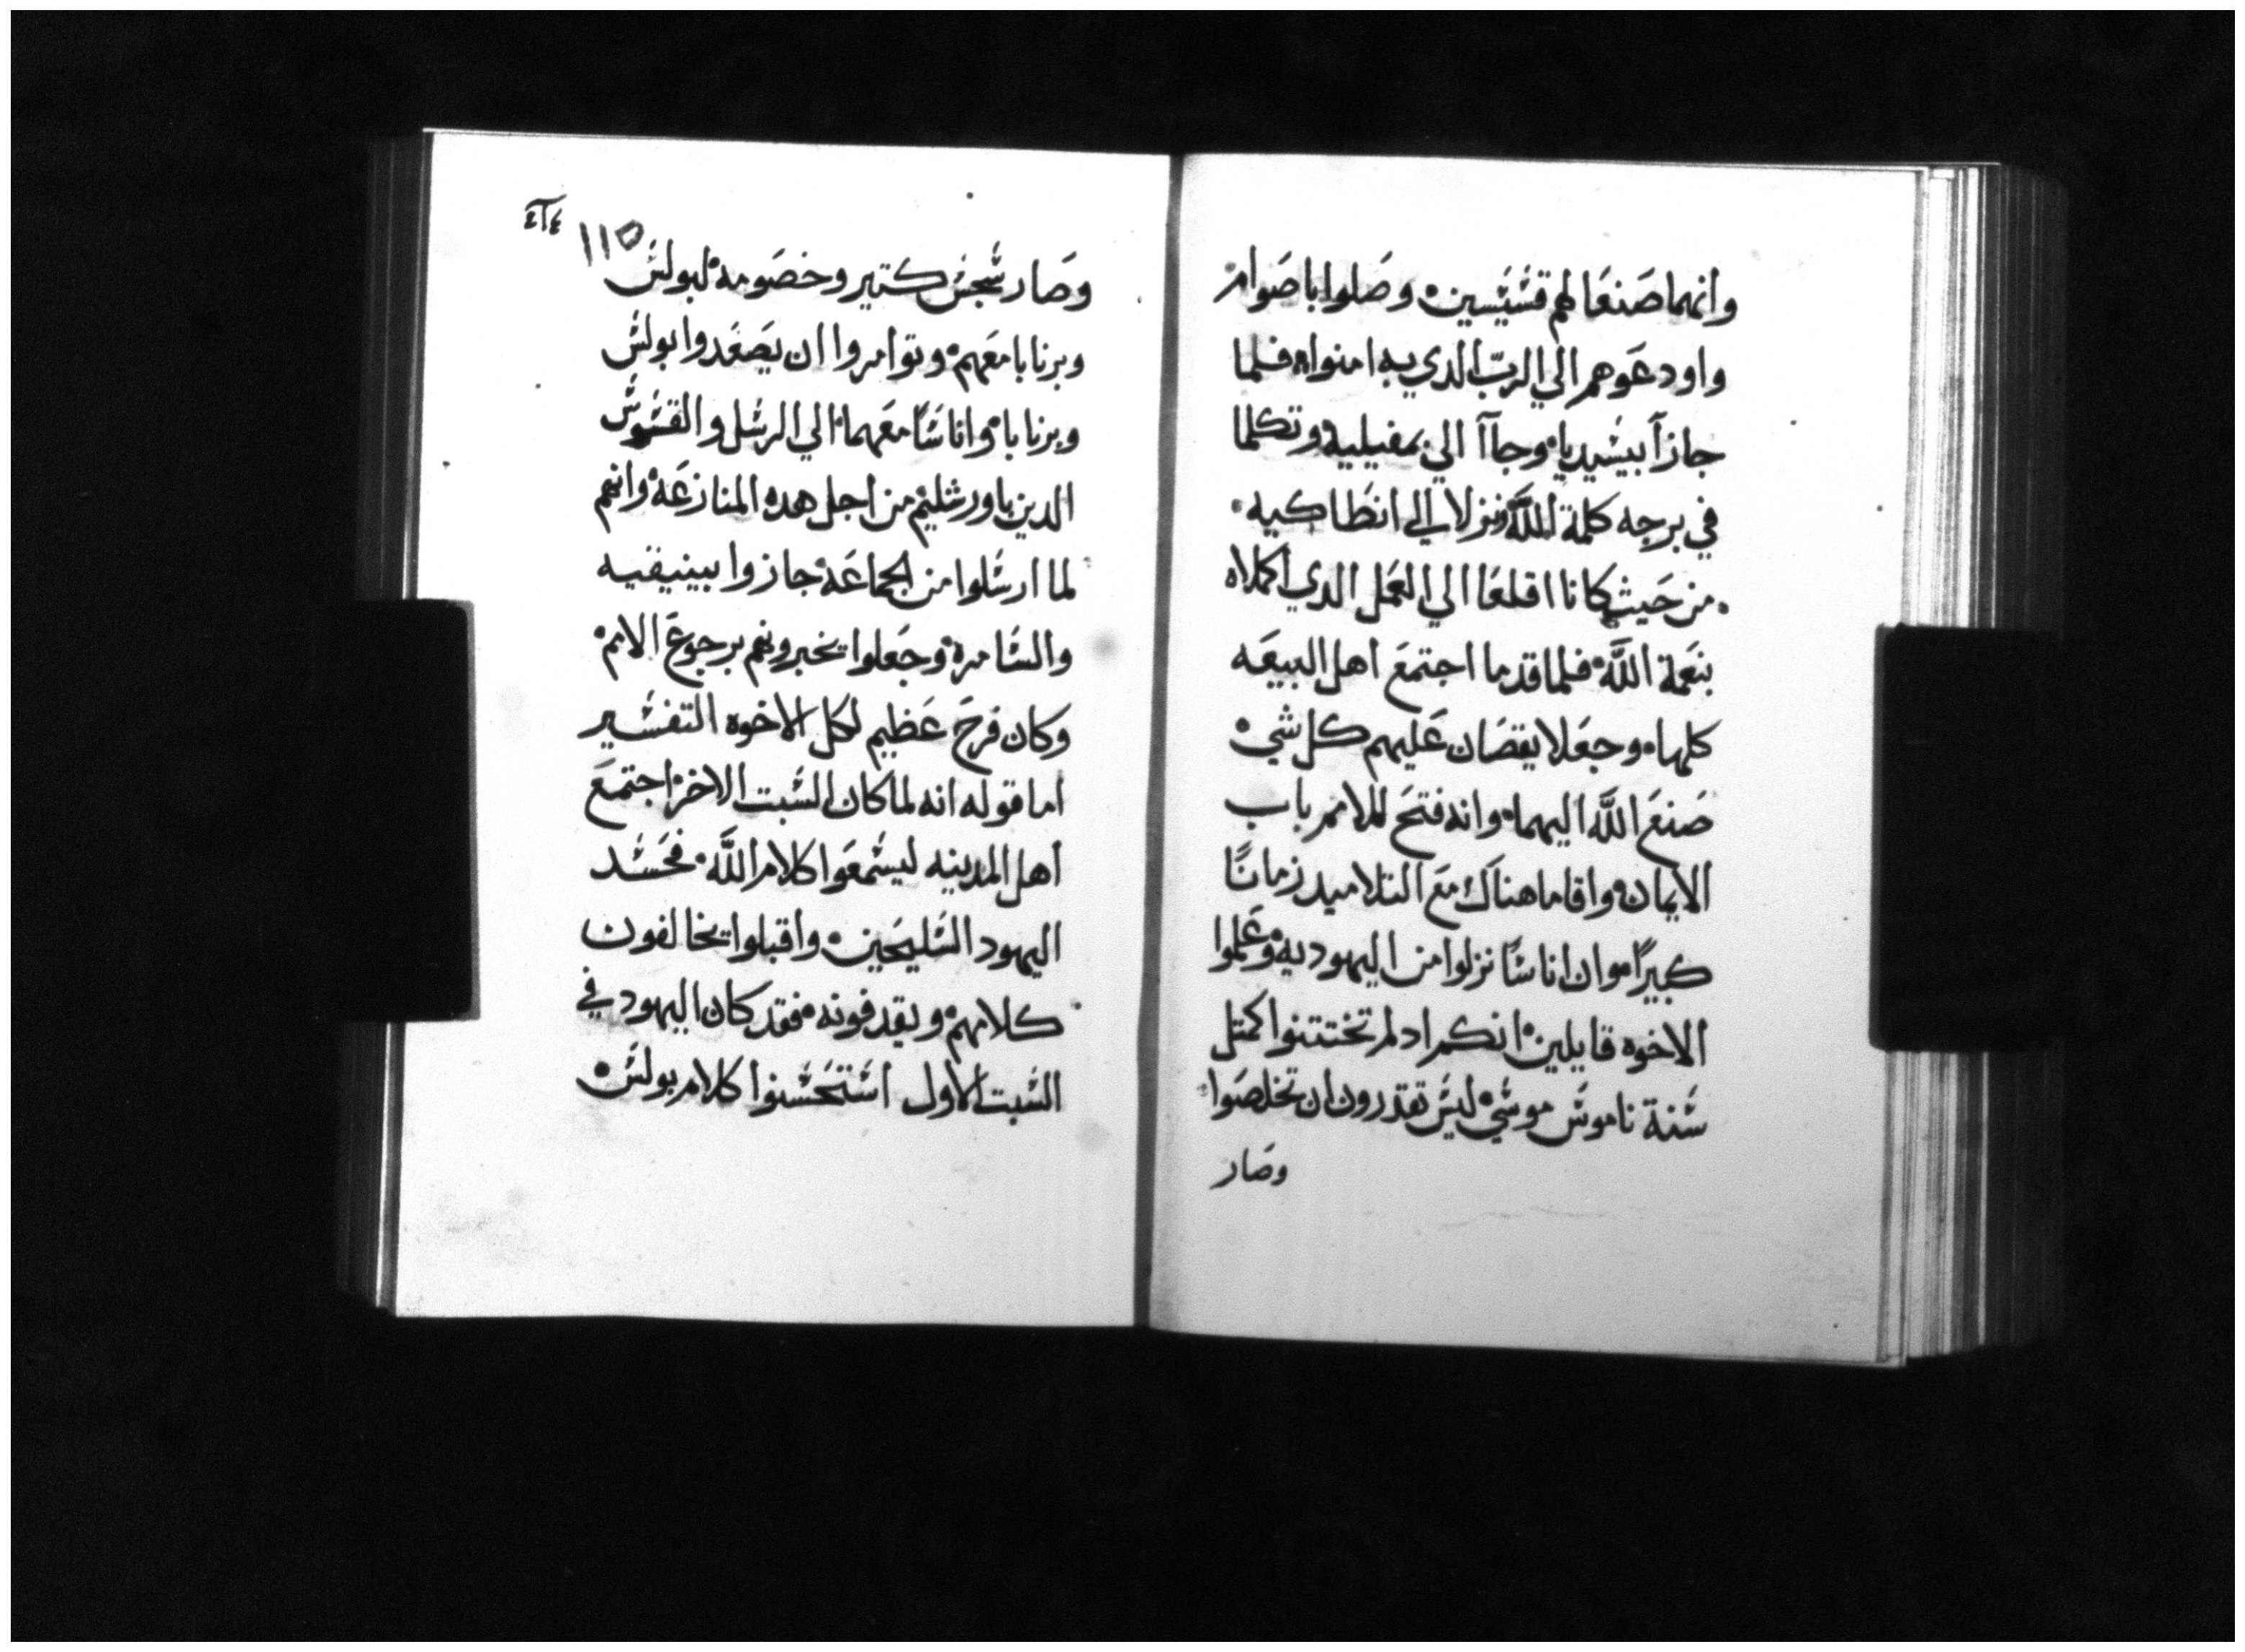 وانهما صَنعَا لهم قسَيَسين ه وصَلوا باصَوام
واودعَوهم الي الربّ الدي به امنوا ه فلما
جازآ بيشيديا ه وجاآ الي بمفيليه وتكلما
في برجه كلمة اللَّه ونزلا الي انطَاكيه ٠
من حَيث كانا اقلعَا الي العَمل الدي اكملاه
بنعَمة اللَّه ه فلما قدما اجتمعَ اهل البيعَه
كلها ه وجعَلا يقصَان عَليهم كل شي ه
صَنعَ اللَّه اليهما ه وانه فتحَ للامم باب
الايمان ه واقاما هناك معَ التلاميد زمانًا
كبيرًا ه وان اناسًا نزلوا من اليهوديه وعَلموا
الاخوه قايلين ه انكم اد لم تختتنوا كمتل
سَنة ناموسَ موسَي ه ليسَ تقدرون ان تخلصَوا
وصَار
٢١٤
١١٥
وصَار سَجسَ كتير وخصَومه ه لبولسَ
وبرنابا معَهم ه وتوامروا ان يصَعَدوا بولسَ
وبرنابا ه واناسَاً معَهما ه الي الرسَل والقسَوسَ
الدين باورشليم ه من اجل هده المنازعَه ه وانهم
لما ارسَلوا من الجماعَة ه جازوا ببينيقيه
والسَامره ه وجَعَلوا يخبرونهم برجوعَ الامم ه
وكان فرحَ عَظيم لكل الاخوه التفسَير
اما قوله انه لما كان السَبت الاخر ه اجتمعَ
اهل المدينه ليسَمعَوا كلام اللَّه ه فحَسَد
اليهود السَليحَين ه واقبلوا يخالفون
كلامهم ه ويقدفونه ه فقد كان اليهود في
السَبت الاول استَحَسَنوا كلام بولسَ ه